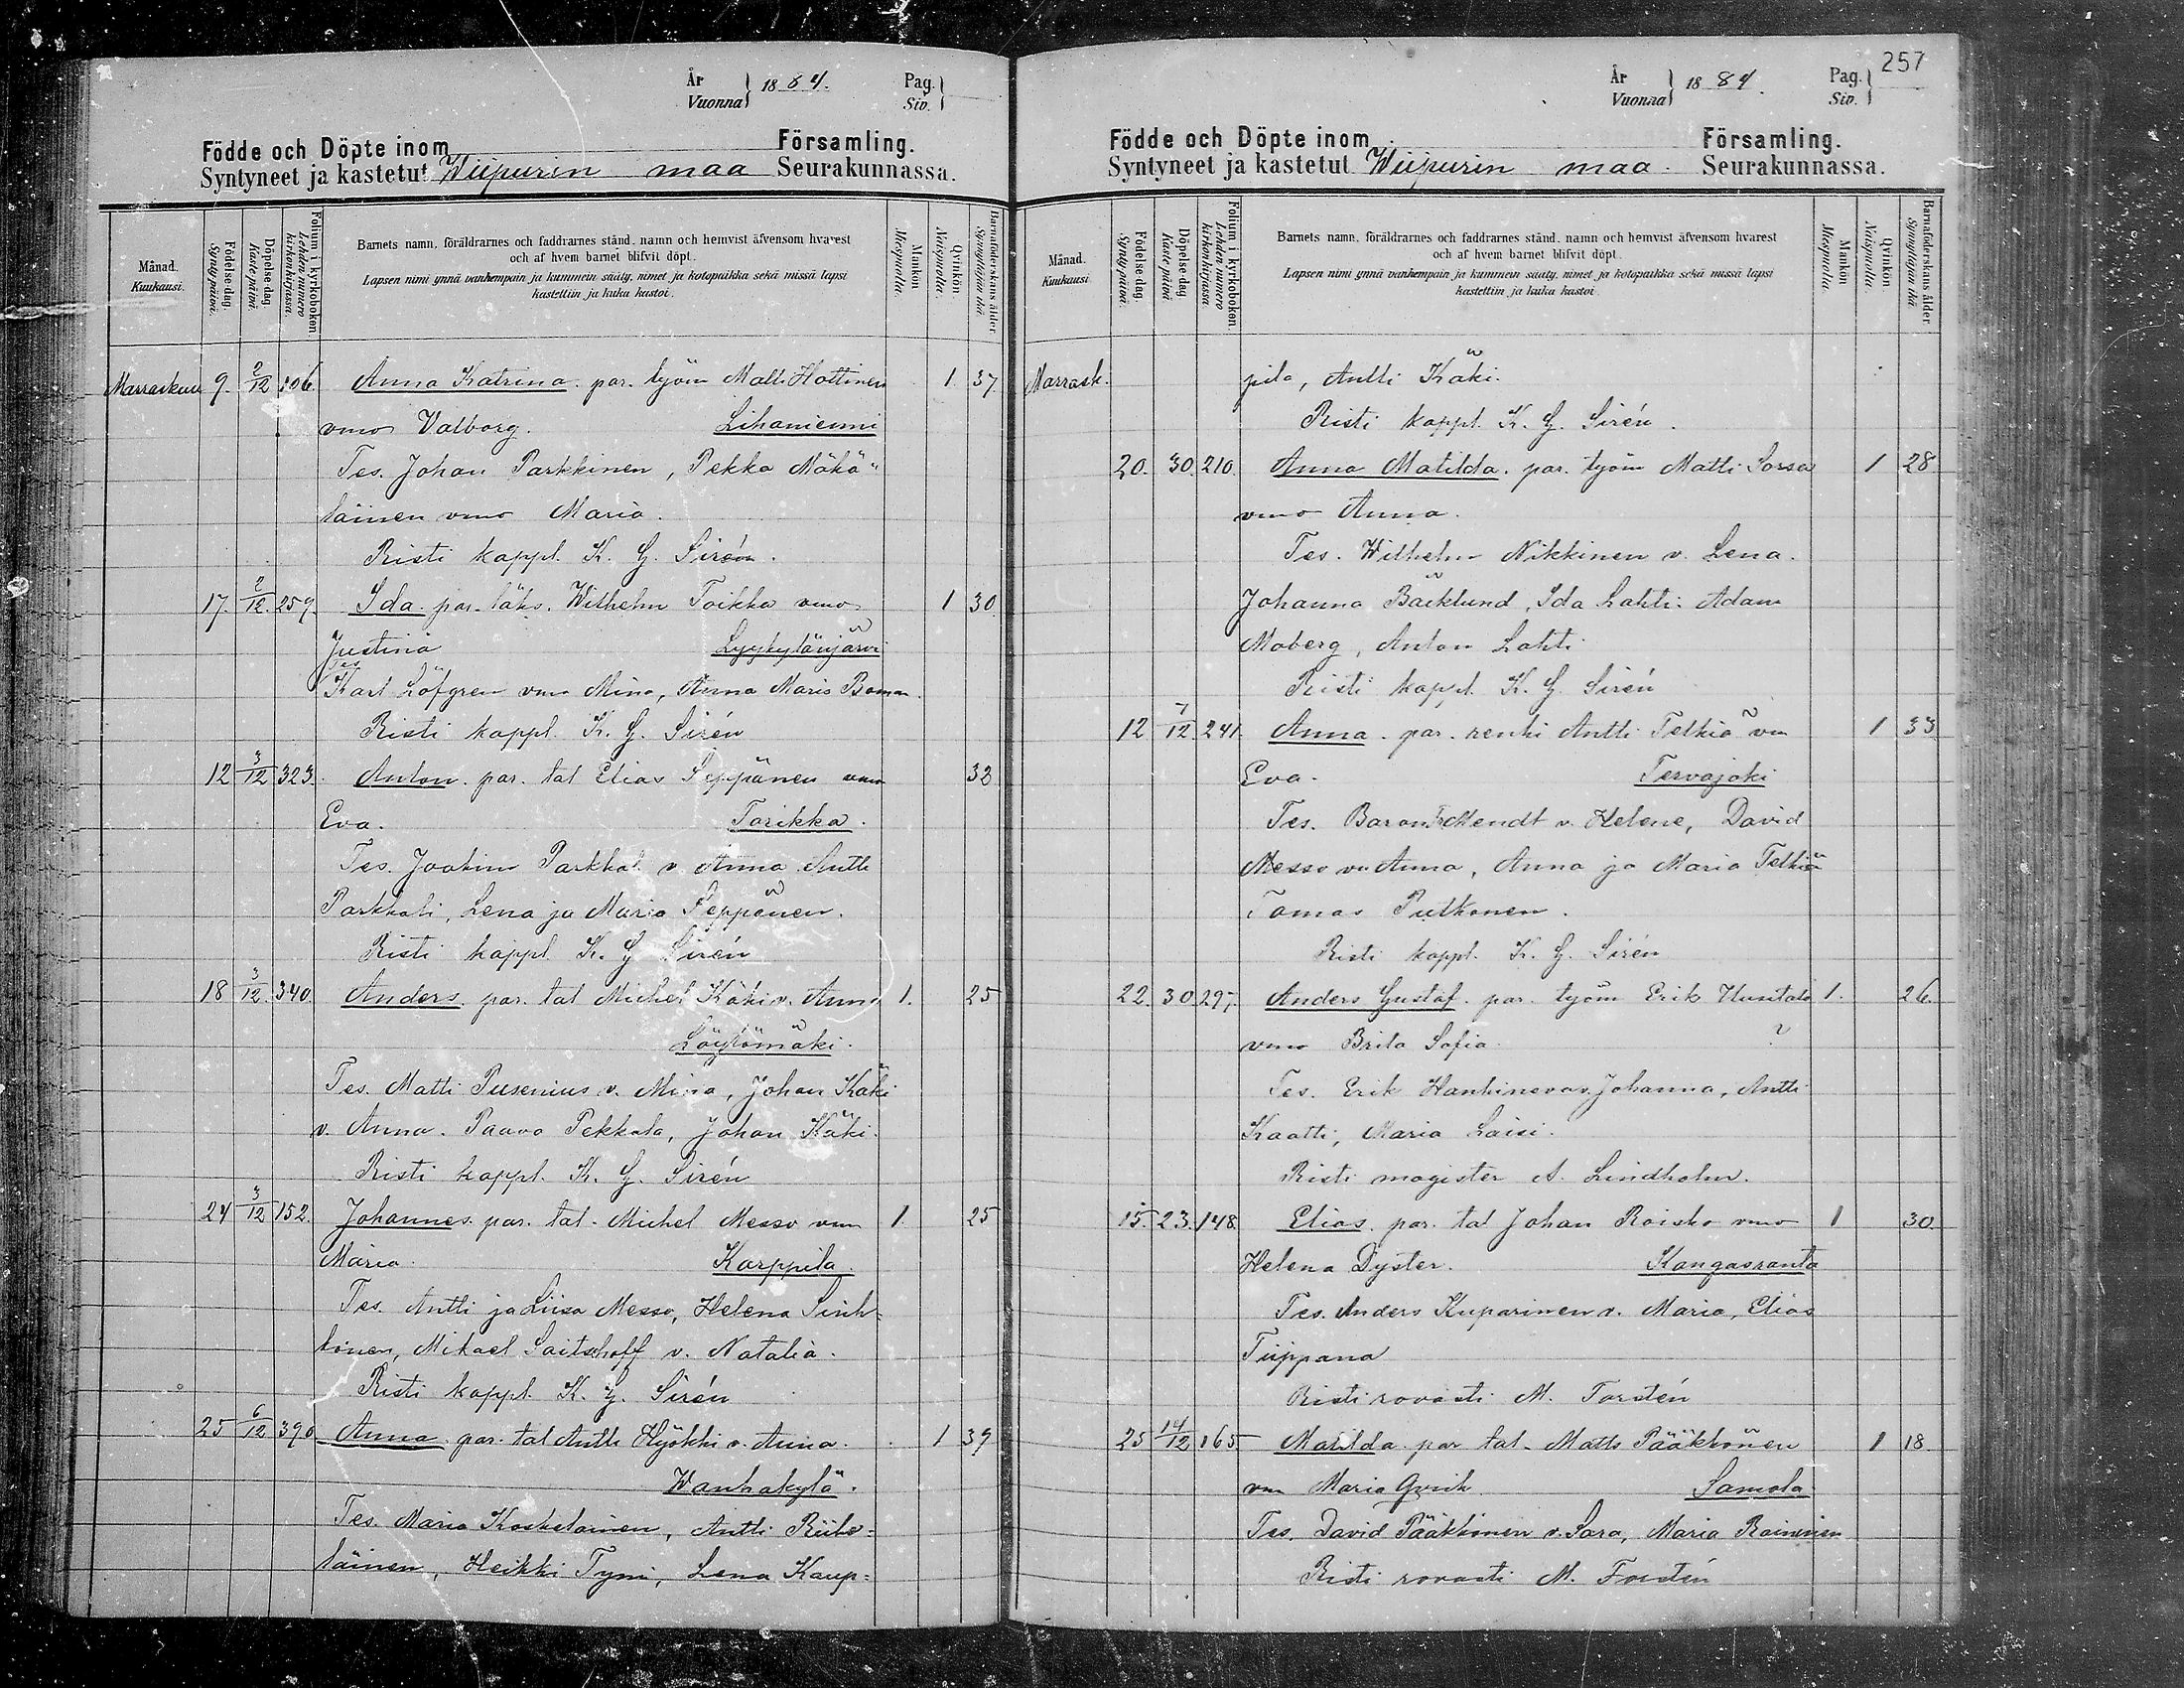 År
Vuonna } 1884.
Pag.
Siv.
Födde och Döpte inom Församling.
Syntyneet ja kastetut Wiipurin maa Seurakunnassa.
Månad. Kuukausi.
Födelse dag. Synty päivä.
Döpelse dag. Kaste päivä.
Folium i kyrkoboken. Lehden numero kirkonkirjassa.
Barnets namn, föräldrarnes och faddrarnes stånd, namn och hemvist äfvensom hvarest
och af hvem barnet blifvit döpt.
Lapsen nimi ynnä vanhempain ja kummein sääty, nimet ja kotopaikka sekä missä lapsi
kastettiin ja kuka kastoi.
Mankön Miespuolta.
Qvinkön. Naispuolta.
Barnaföderskans ålder. Synnyttäjän ikä.
Marraskuu 9. 2/12 106. Anna Katrina. par. työm Matti Hottinen 1 37
vmo Valborg. Lihaniemi
Tes. Johan Parkkinen, Pekka Mökö-
läinen vmo Maria.
Risti kappl. K. G. Sirén.
17. 2/12. 259. Ida. par. läks. Wilhelm Toikka vmo 1 30.
Justina Lyykylänjärvi
Tes
Karl Löfgren vmo Mina, Anna Maria Boman.
Risti kappl. K. G. Sirén
12 3/12 323. Anton. par. tal Elias Seppänen vmo 32
Eva. Tarikka.
Tes. Joakim Parkkal. v. Anna Antti
Parkkali, Lena ja Maria Seppönen.
Risti kappl. K. G. Sirén
18 3/12. 340. Anders. par. tal Michel Käki v. Anna 1. 25
Löytömäki.
Tes. Matti Pusenius v. Mina, Johan Käki
v. Anna. Paavo Pekkala, Johan Käki.
Risti kappl. K. G. Sirén
24 3/12 152. Johannes. par. tal. Michel Messo vmo 1. 25
Maria. Karppila.
Tes. Antti ja Liisa Messo, Helena Sinh-
konen, Mikael Saitshoff v. Natalia.
Risti kappl. K. G. Sirén
25 6/12 390 Anna. par. tal Antti Hyökki v. Anna. 1 39
Wanhakylä.
Tes. Maria Koskelainen, Antti Riihe-
läinen, Heikki Tyni, Lena Kaup-
257
År
Vuonna } 1884.
Pag.
Siv.
Födde och Döpte inom Församling.
Syntyneet ja kastetut Wiipurin maa. Seurakunnassa.
Månad. Kuukausi.
Födelse dag. Synty päivä.
Döpelse dag Kaste päivä.
Folium i kyrkoboken. Lehden numero kirkonkirjassa.
Barnets namn, föräldrarnes och faddrarnes stånd, namn och hemvist äfvensom hvarest
och af hvem barnet blifvit döpt.
Lapsen nimi ynnä vanhempain ja kummein sääty, nimet ja kotopaikka sekä missä lapsi
kastettiin ja kuka kastoi.
Mankön Miespuolta.
Qvinkön. Naispuolta.
Barnaföderskans ålder Synnyttäjän ikä
Marrask. pila, Antti Käki.
Risti kappl. K. G. Sirén.
20. 30. 210. Anna Matilda. par. työm Matti Sorsa 1 28
vmo Anna.
Tes. Wilhelm Nikkinen v. Lena.
Johanna Bäcklund, Ida Lahti. Adam
Moberg, Anton Lahti
Risti kappl. K. G. Sirén
12 7/12. 241. Anna. par. renki Antti Telkiä vm 1 33
Eva. Tervajoki
Tes. Baron Mendt v. Helene, David
Messo vm Anna, Anna ja Maria Telkiä
Tomas Putkonen.
Risti kappl. K. G. Sirén
22. 30. 297. Anders Gustaf. par. työm Erik Uusitalo 1. 26.
vmo Brita Sofia. ?
Tes. Erik Hankinen v. Johanna, Antti
Kaatti, Maria Laisi.
Risti magister A. Lindholm.
15. 23. 148. Elias. par. tal Johan Roisko vmo 1 30.
Helena Dyster. Kangasranta
Tes. Anders Kuparinen v. Maria, Elias
Tiippana
Risti rovasti M. Forstén
25 14/12 165 Matilda. par tal. Matts Pääkkönen 1 18.
vm Maria Qvick. Samola
Tes. David Pääkkönen v. Sara, Maria Raininen
Risti rovasti M. Forstén